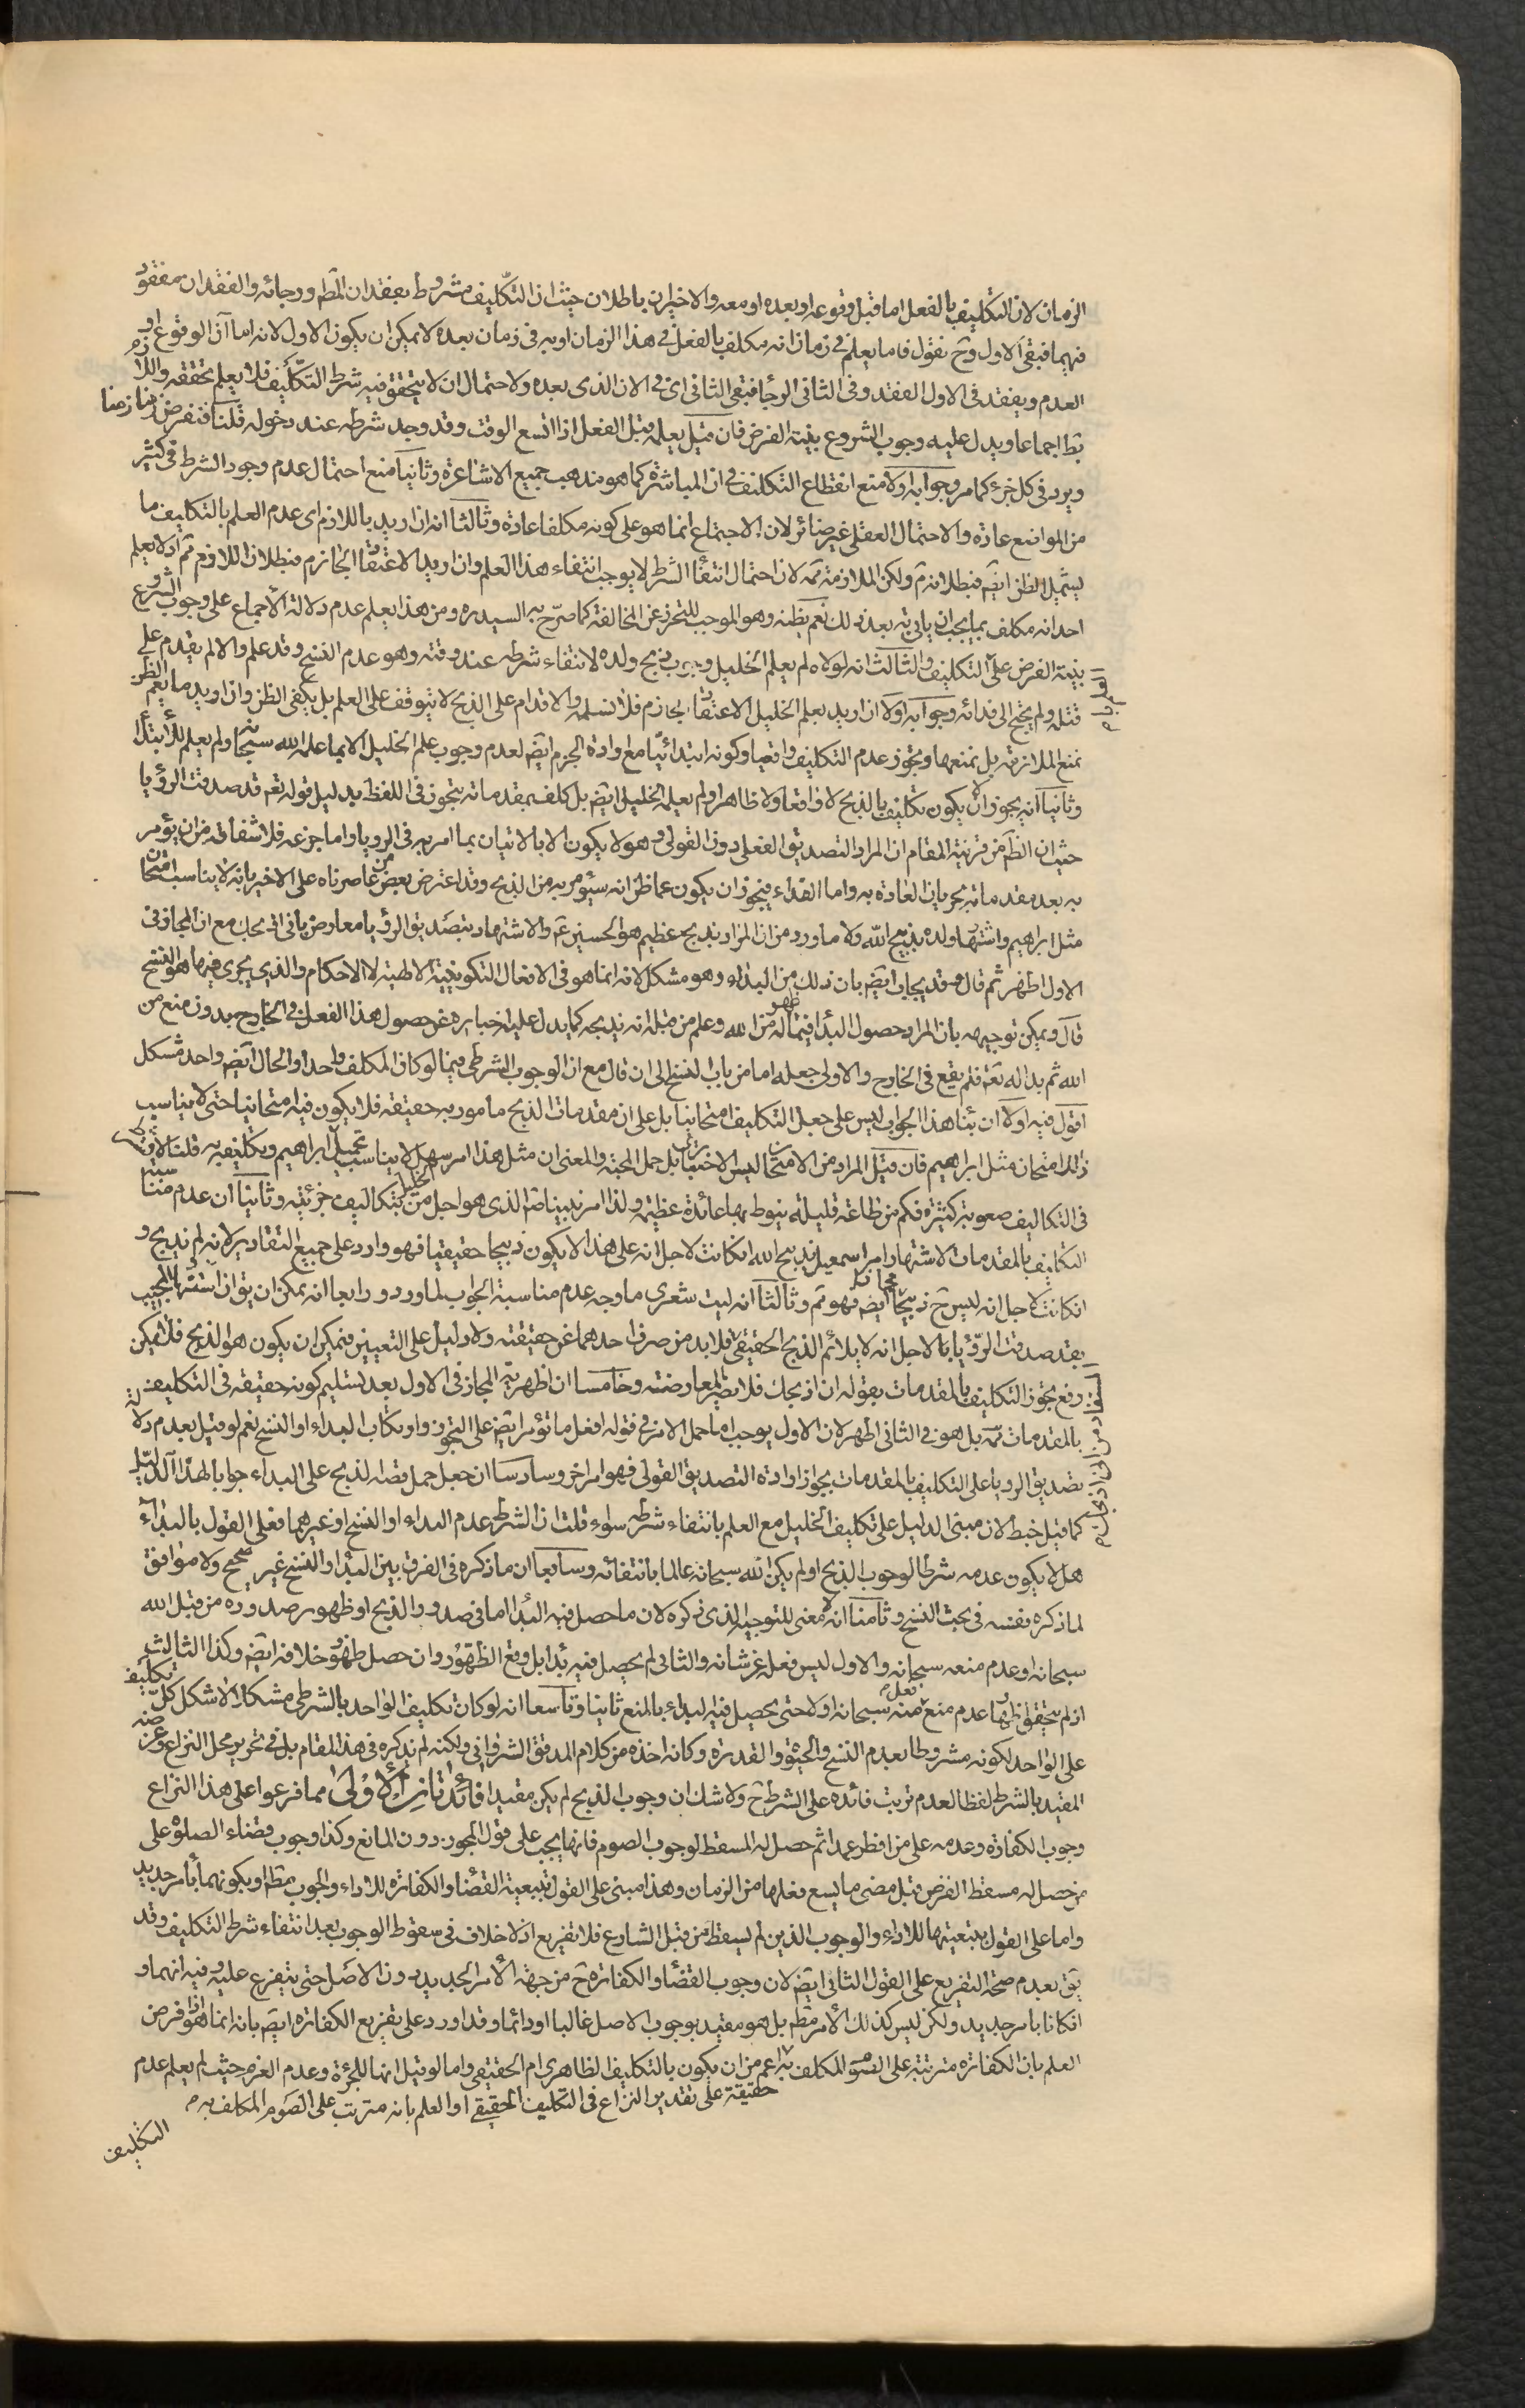 الزمان لان التكليف بالفعل اما قبل وقوعه او بعده او معه والاخيران باطلان حيث ان التكليف مشروط بفقدان المط ورجائه والفقدان مفقود
فيهما فبقى الاول وح نقول فاما يعلم فى زمان انه مكلف بالفعل فى هذا الزمان او به فى زمان بعده لا يمكن ان يكون الاول لانه اما آن الوقوع او
العدم ويفقد فى الاول الفقد وفى الثانى الرجا فبقى الثانى اى فى الان الذى بعده ولاحتمال ان لا يتحقق فيه شرط التكليف فلا يعلم تحققه واللازم
بط اجماعا ويدل عليه وجوب الشروع بنية الفرض فان قيل يعلم قبل الفعل اذا اتسع الوقت وقد وجد شرطه عند دخوله قلنا فنفرض زمنا زمنا
ويرد فى كل جزء كما مر وجوابه اولا منع انقطاع التكليف فى ان المباشرة كما هو مذهب جميع الاشاعرة وثانيا منع احتمال عدم وجود الشرط فى كثير
من المواضع عادة والاحتمال العقلى غير ضائر لان الاجتماع انما هو على كونه مكلفا عادة وثالثا انه ان اريد باللازم اى عدم العلم بالتكليف ما
يشمل الظن ايضا فبطلانه م ولكن الملازمة ثمه لان احتمال انتفاء الشرط لا يوجب انتفاء هذا العلم وان اريد الاعتقاد الجازم فبطلان اللازم م اذ لا يعلم
احد انه مكلف بما يجب ان ياتى به بعد ذلك نعم يظنه وهو الموجب للتحرز عن المخالفة كما صرح به السيد ره ومن هذا يعلم عدم دلالة الاجماع على وجوب الشروع
بنية الفرض على التكليف والثالث انه لولاه لم يعلم الخليل وجوب ذبح ولده لانتفاء شرطه عند وقته وهو عدم النسخ وقد علم والا لم يقدم على
قتله ولم يحتج الى فدائه وجوابه اولا ان اريد بعلم الخليل الاعتقاد الجازم فلا نسلمه والاقدام على الذبح لا يتوقف على العلم بل يكفى الظن وان اريد ما يعم الظن
نمنع الملازمة بل نمنعها ونجوز عدم التكليف واقعيا وكونه ابتدائيا مع ارادة الجزم ايضا لعدم وجوب علم الخليل الا بما علمه الله سبحانه ولم يعلم للابتلا
وثانيا انه يجوز ان لا يكون تكليف بالذبح لا واقعا ولا ظاهرا ولم يعلمه الخليل ايضا بل كلف بمقدماته بتجوز فى اللفظ بدليل قوله تعه قد صدقت الرؤيا
حيث ان الظ من قرينة المقام ان المراد التصديق الفعلى دون القولى وهو لا يكون الا بالاتيان بما امر به فى الرويا واما جزعه فلاشفاقه من ان يؤمر
به بعد مقدماته بجريان العادة به واما الفداء فيجوز ان يكون عما ظن انه سيؤمر به من الذبح وقد اعترض بعض من عاصرناه على الاخير بانه لا يناسب امتحان
مثل ابراهيم واشتهار ولده بذبيح الله ولا ما ورد من ان المراد بذبح عظيم هو الحسين ع والاشتهاد بتصديق الرؤيا معارض بانى اذبحك مع ان المجاز فى
الاول اظهر ثم قال وقد يجاب ايضا بان ذلك من البداء وهو مشكل لانه انما هو فى الافعال التكوينية الالهية لا الاحكام والذى يجرى فيها هو النسخ
قال ويمكن توجيهه بان المراد حصول البداء فيما ظهر له من الله وعلم من قبله انه يذبحه كما يدل عليه اخباره عن حصول هذا الفعل فى الخارج بدون منع من
الله ثم بدا له تعه فلم يقع فى الخارج والاولى جعله اما من باب النسخ الى ان قال مع ان الوجوب الشرطى فيما لو كان المكلف واحدا والحال ايضا واحد مشكل
اقول فيه اولا ان بناء هذا الجواب ليس على جعل التكليف امتحانيا بل على ان مقدمات الذبح مامور به حقيقة فلا يكون فيه امتحانيا حتى لا يناسب
ذلك امتحان مثل ابراهيم فان قيل المراد من الامتحان ليس الاختبار بل حمل المحنة والمعنى ان مثل هذا امر سهل لا يناسب تحميل ابراهيم وتكليفه به قلنا لا
فى التكاليف صعوبة كثيرة فكم من طاعة قليلة ينوط بها عائدة عظيمة ولذا امر نبينا ص الذى هو اجل من الخليل بتكاليف جزئية وثانيا ان عدم مناسبة
التكليف بالمقدمات لاشتهار امر اسمعيل بذبيح الله ان كانت لاجل انه على هذا لا يكون ذبيحا حقيقيا فهو وارد على جميع التقادير لانه لم يذبح و
ان كانت لاجل انه ليس ح ذبيحا مجازا ايضا فهو م وثالثا انه ليت شعرى ما وجه عدم مناسبة الجواب لما ورد ورابعا انه يمكن ان يق ان استشهاد المجيب
بقد صدقت الرؤيا لاجل انه لا يلائم الذبح الحقيقى فلا بد من صرف احدهما عن حقيقته ولا دليل على التعيين فيمكن ان يكون هو الذبح فلا يمكن
دفع تجوز التكليف بالمقدمات بقوله انى اذبحك فلا يضر المعارضة وخامسا ان اظهرية المجاز فى الاول بعد تسليم كونه حقيقة فى التكليف
بالمقدمات ثمه بل هو فى الثانى اظهر لان الاول يوجب اما حمل الامر فى قوله افعل ما تؤمر ايضا على التجوز او ارتكاب البداء او النسخ نعم لو قيل بعدم دلالة
تصديق الرويا على التكليف بالمقدمات بجواز ارادة التصديق القولى فهو امر اخر وسادسا ان جعل حمل قضية الذبح على البداء جوابا لهذا الدليل
كما قيل خبط لان مبنى الدليل على تكليف الخليل مع العلم بانتفاء شرطه سواء قلت ان الشرط عدم البداء او النسخ او غيرهما فعلى القول بالبداء
هل لا يكون عدمه شرطا لوجوب الذبح او لم يكن الله سبحانه عالما بانتفائه وسابعا ان ما ذكره فى الفرق بين البداء والنسخ غير صحيح ولا موافق
لما ذكره بنفسه فى بحث النسخ وثامنا انه لا معنى للتوجيه الذى ذكره لان ما حصل فيه البداء اما فى صدور الذبح او ظهور صدوره من قبل الله
سبحانه او عدم منعه سبحانه والاول ليس فعله عز شانه والثانى لم يحصل فيه بدا بل وقع الظهور وان حصل ظهور خلافه ايضا وكذا الثالث
اذ لم يتحقق ظهور عدم منع منه سبحانه اولا حتى يحصل فيه البداء بالمنع ثانيا وتاسعا انه لو كان تكليف الواحد بالشرطى مشكلا لاشكل كل تكليف
على الواحد لكونه مشروطا بعدم النسخ والحيوة والقدرة وكانه اخذه من كلام المدقق الشروانى ولكنه لم يذكره فى هذا المقام بل فى تحرير محل النزاع وغرضه
المقيد بالشرط لفظا لعدم ترتب فائدة على الشرط ح ولا شك ان وجوب الذبح لم يكن مقيدا فائدتان الاولى مما فرعوا على هذا النزاع
وجوب الكفارة وعدمه على من افطر عمدا ثم حصل له المسقط لوجوب الصوم فانها يجب على قول المجوز دون المانع وكذا وجوب قضاء الصلوة على
من حصل له مسقط الفرض قبل مضى ما يسع فعلها من الزمان وهذا مبنى على القول بتبعية القضاء والكفارة للاداء والوجوب مط او بكونهما بامر جديد
واما على القول بتبعيتهما للاداء والوجوب الذين لم يسقط من قبل الشارع فلا تفريع اذ لا خلاف فى سقوط الوجوب بعد انتفاء شرط التكليف وقد
يق بعدم صحة التفريع على القول الثانى ايضا لان وجوب القضاء والكفارة ح من جهة الامر الجديد دون الاصل حتى يتفرع عليه وفيه انهما و
ان كانا بامر جديد ولكن ليس كذلك الامر مط بل هو مقيد بوجوب الاصل غالبا او دائما وقد اورد على تفريع الكفارة ايضا بانه انما هو اذا فرض
العلم بان الكفارة مترتبة على الصوم المكلف به اعم من ان يكون بالتكليف الظاهرى ام الحقيقى واما لو قيل انها للجرئة وعدم العزم حيث لم يعلم عدم
حقيقة على تقدير النزاع فى التكليف الحقيقى او العلم بانه مترتب على الصوم المكلف به م
التكليف